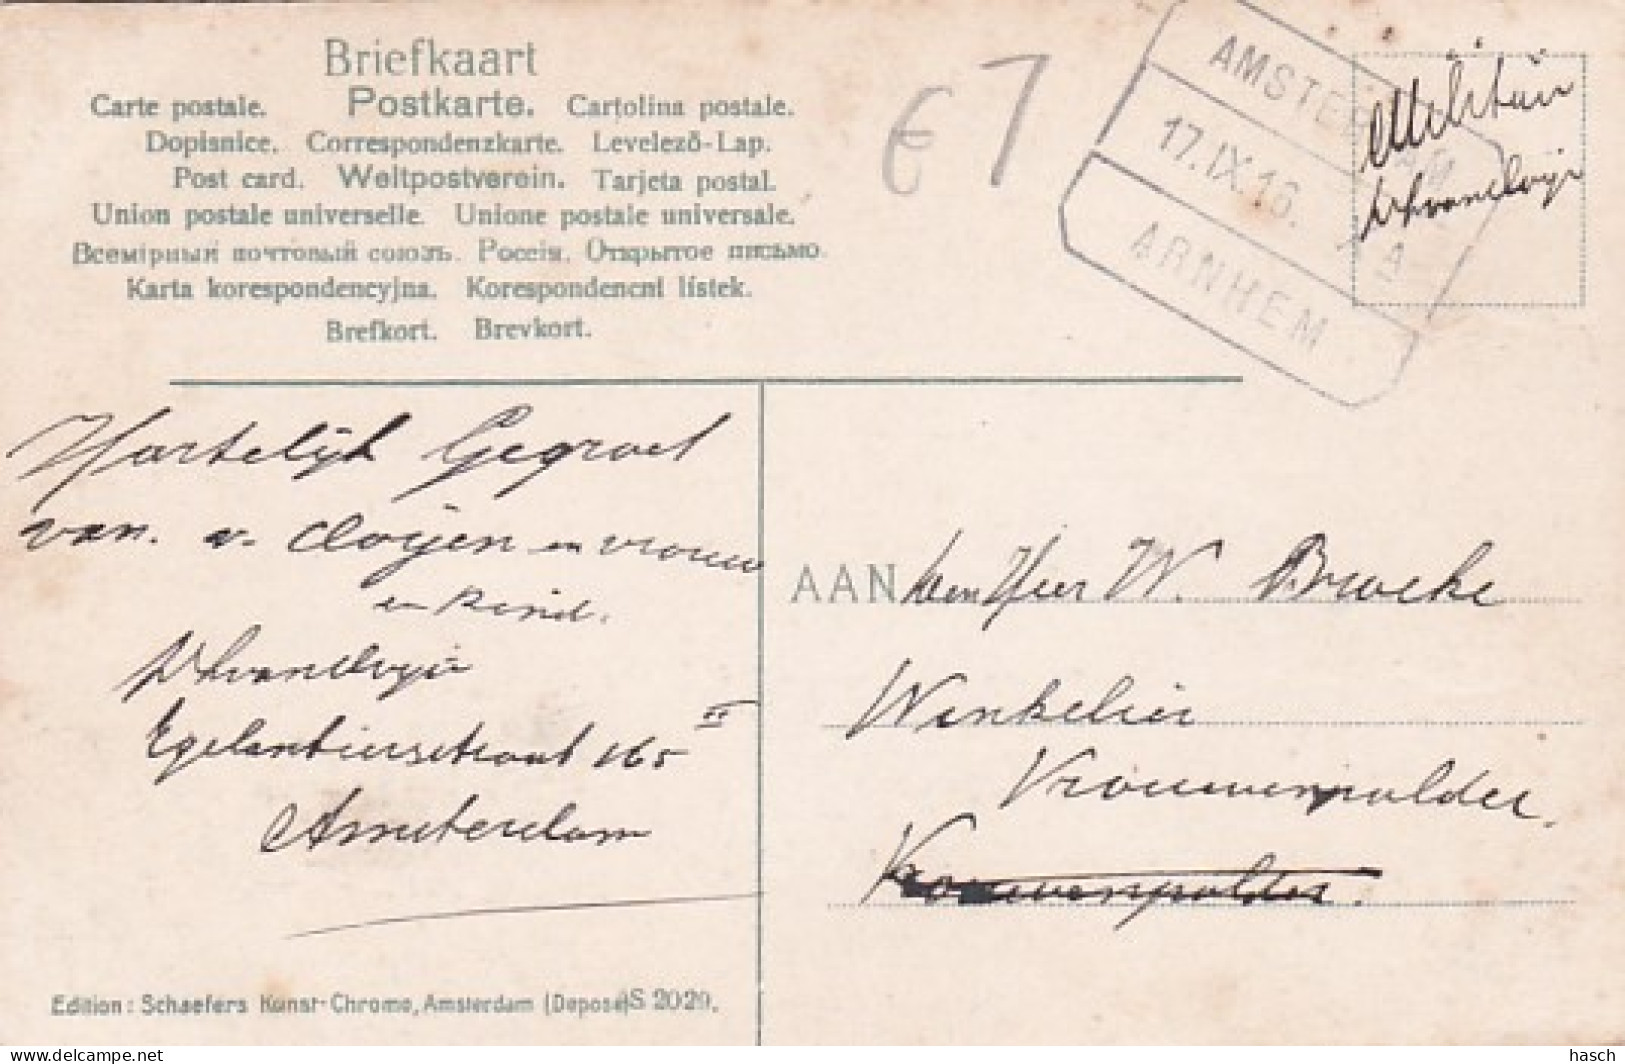 Briefkaart
Carte postale. Postkarte. Cartolina postale.
Dopisnice. Correspondenzkarte. Levelező-Lap.
Post card. Weltpostverein. Tarjeta postal.
Union postale universelle. Unione postale universale.
Всемірный почтовый союзъ. Россія. Открытое письмо.
Karta korespondencyjna. Korespondencni lístek.
Brefkort. Brevkort.
€ 7
AMSTERDAM
17.IX.16. A
ARNHEM
Militair
Hartelijk Gegroet
van. v. Cloijen en vrouw
en kind.
Egelantierstraat 165 II
Amsterdam
AAN den Heer W. Broeke
Winkelier
Vrouwenpolder.
Vrouwenpolder.
Edition: Schaefers Kunst-Chromo, Amsterdam (Deposé) S 2029.
hasch